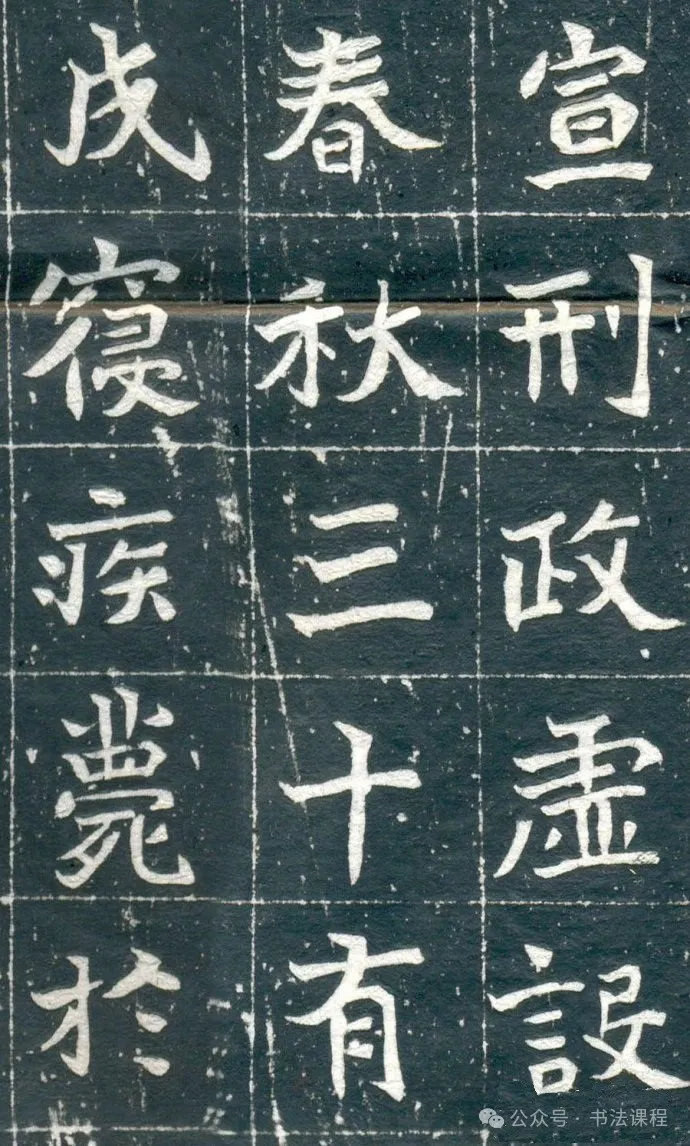 宣刑政虛設
春秋三十有
戌寢疾薨於
公众号 · 书法课程